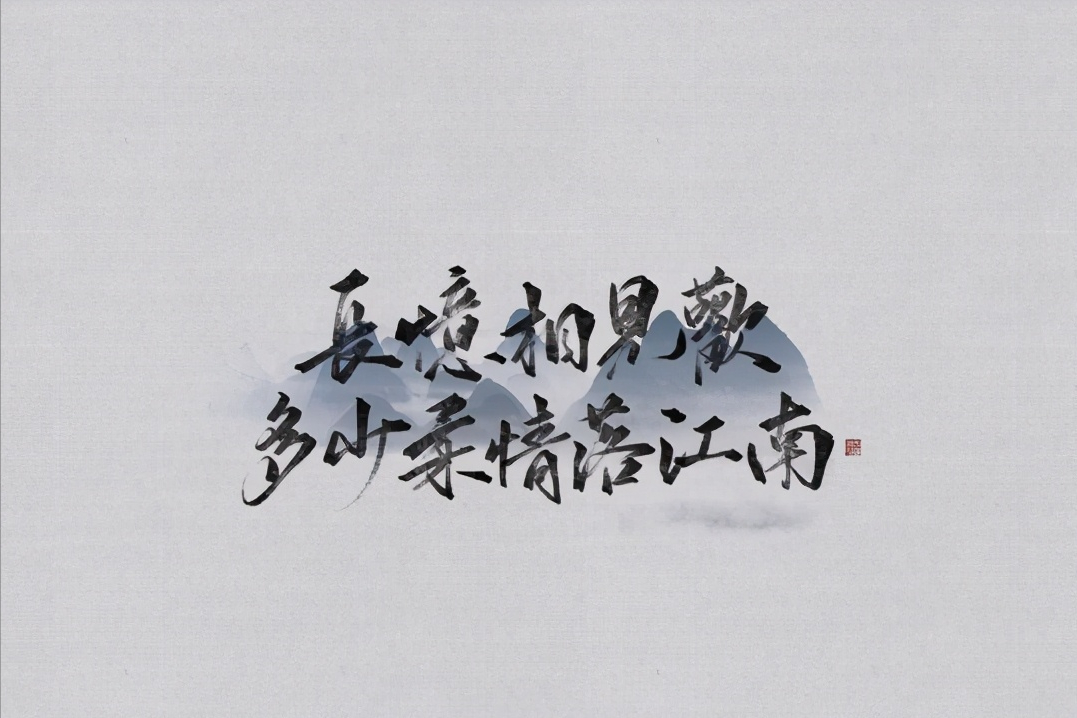 長憶相見歡
多少柔情落江南